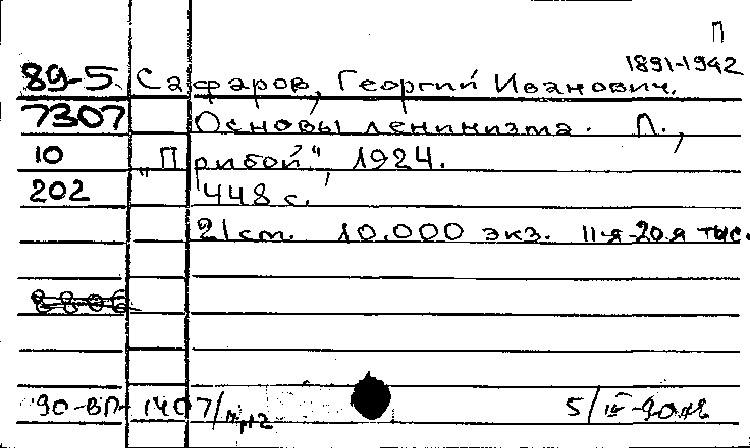 П
1891-1942
89-5 Сафаров, Георгий Иванович.
7307 Основы ленинизма. Л.,
10 "Прибой", 1924.
202 448 с.
21 см. 10.000 экз. 11-я-20-я тыс.
90-ВП- 1407/
5/IV-90